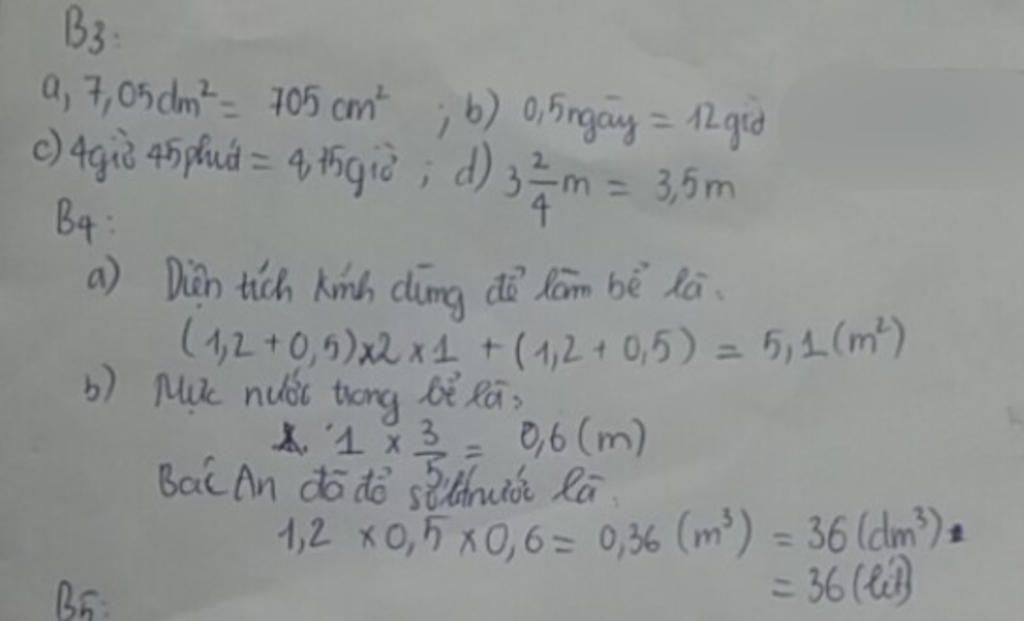 B3:
a, 7,05dm² = 705 cm² ; b) 0,5 ngày = 12 giờ
c) 4 giờ 45 phút = 4,75 giờ ; d) 3 2/4 m = 3,5 m
B4:
a) Diện tích kính dùng để làm bể là:
(1,2 + 0,5) x 2 x 1 + (1,2 + 0,5) = 5,1 (m²)
b) Mực nước trong bể là:
1 x 3/5 = 0,6 (m)
Bác An đã đổ số lít nước là:
1,2 x 0,5 x 0,6 = 0,36 (m³) = 36 (dm³)
= 36 (lít)
B5: